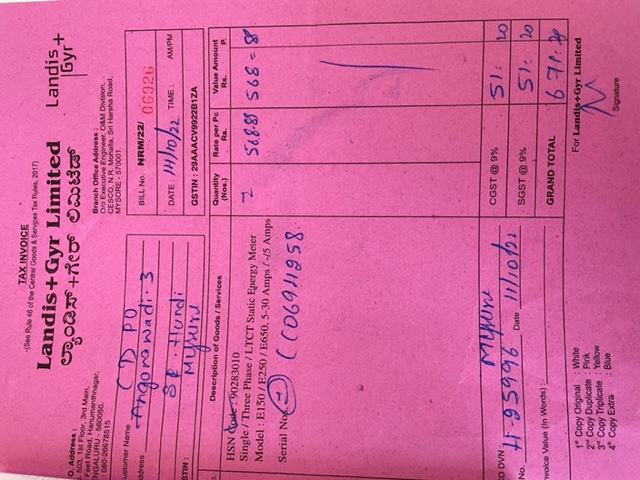 TAX INVOICE
(See Rule 46 of the Central Goods & Services Tax Rules, 2017)
Landis+Gyr Limited
ಲ್ಯಾಂಡಿಸ್+ಗೇರ್ ಲಿಮಿಟೆಡ್
Landis
Gyr+
O. Address :
503, 1st Floor, 3rd Main,
Feet Road, Hanumanthnagar,
NGALURU - 560050.
: 080-26678515
Branch Office Address :
O/o Executive Engineer, O&M Division,
CESCO, N.R. Mohalla, Sri Harsha Road,
MYSORE - 570001.
ustomer Name CDPO
ddress Angonawadi - 3
Hundi
Mysuru
STIN :
BILL No. NRM/22/ 06926
DATE : 14/10/22 TIME : AM/PM
GSTIN : 29AAACV9922B1ZA
Description of Goods / Services Quantity (Nos.) Rate per Pc Rs. Value Amount Rs. P.
HSN Code : 90283010 568-81 568=81
Single / Three Phase / LTCT Static Energy Meter
Model : E150 / E250 / E650, 5-30 Amps / -/5 Amps
Serial Nos.
CGST @ 9% 51: 20
SGST @ 9% 51: 20
GRAND TOTAL
O DVN Mysuru
No. Date 11/10/22
nvoice Value (In Words) :
1st Copy Original : White
2nd Copy Duplicate : Pink
3rd Copy Triplicate : Yellow
4th Copy Extra : Blue
For Landis+Gyr Limited
Signature